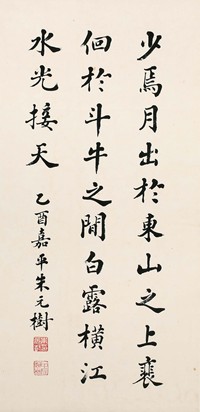 少焉月出於東山之上裵
佪於斗牛之閒白露橫江
水光接天
乙酉嘉平朱元樹